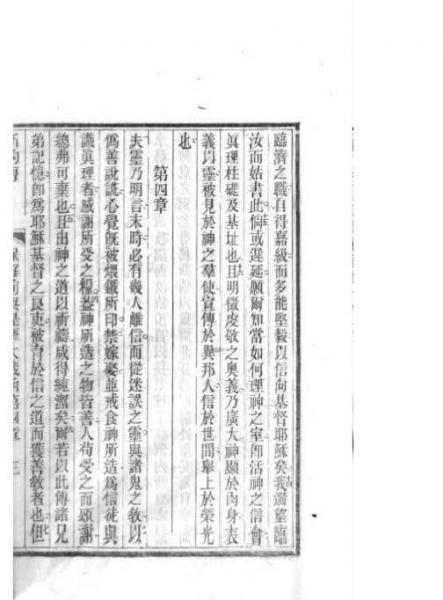 臨濟之職自得嘉級而多能堅毅以信向基督耶穌矣我滿望臨
汝而姑書此倘或遲延願爾知當如何理神之室即活神之信會
眞理柱礎及基址也且明徵虔敬之奧義乃廣大神顯於肉身表
義以靈被見於神之羣使宣傳於異邦人信於世間舉上於榮光
也
第四章
夫靈乃明言末時必有幾人離信而從迷誤之靈與諸鬼之敎以
僞善說謊心覺旣被煨鐵所印禁嫁娶並戒食神所造爲信徒與
識眞理者感謝所受之糧蓋神所造之物皆善人苟受之而頌謝
總弗可棄也且出神之道以祈禱咸得純潔矣爾若以此傳諸兄
弟記憶卽爲耶穌基督之良吏被育於信之道而獲善敎者也但